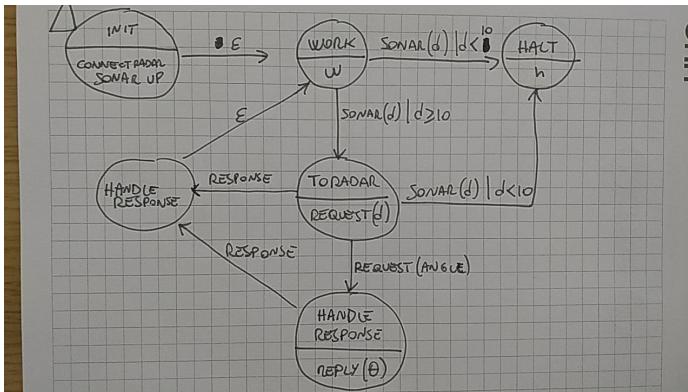 INIT
CONNECTRADAR
SONAR UP
ε
WORK
W
SONAR(d) | d<10
HALT
h
ε
SONAR(d) | d≥10
HANDLE
RESPONSE
RESPONSE
TORADAR
REQUEST(d)
SONAR(d) | d<10
RESPONSE
REQUEST(ANGLE)
HANDLE
RESPONSE
REPLY(θ)